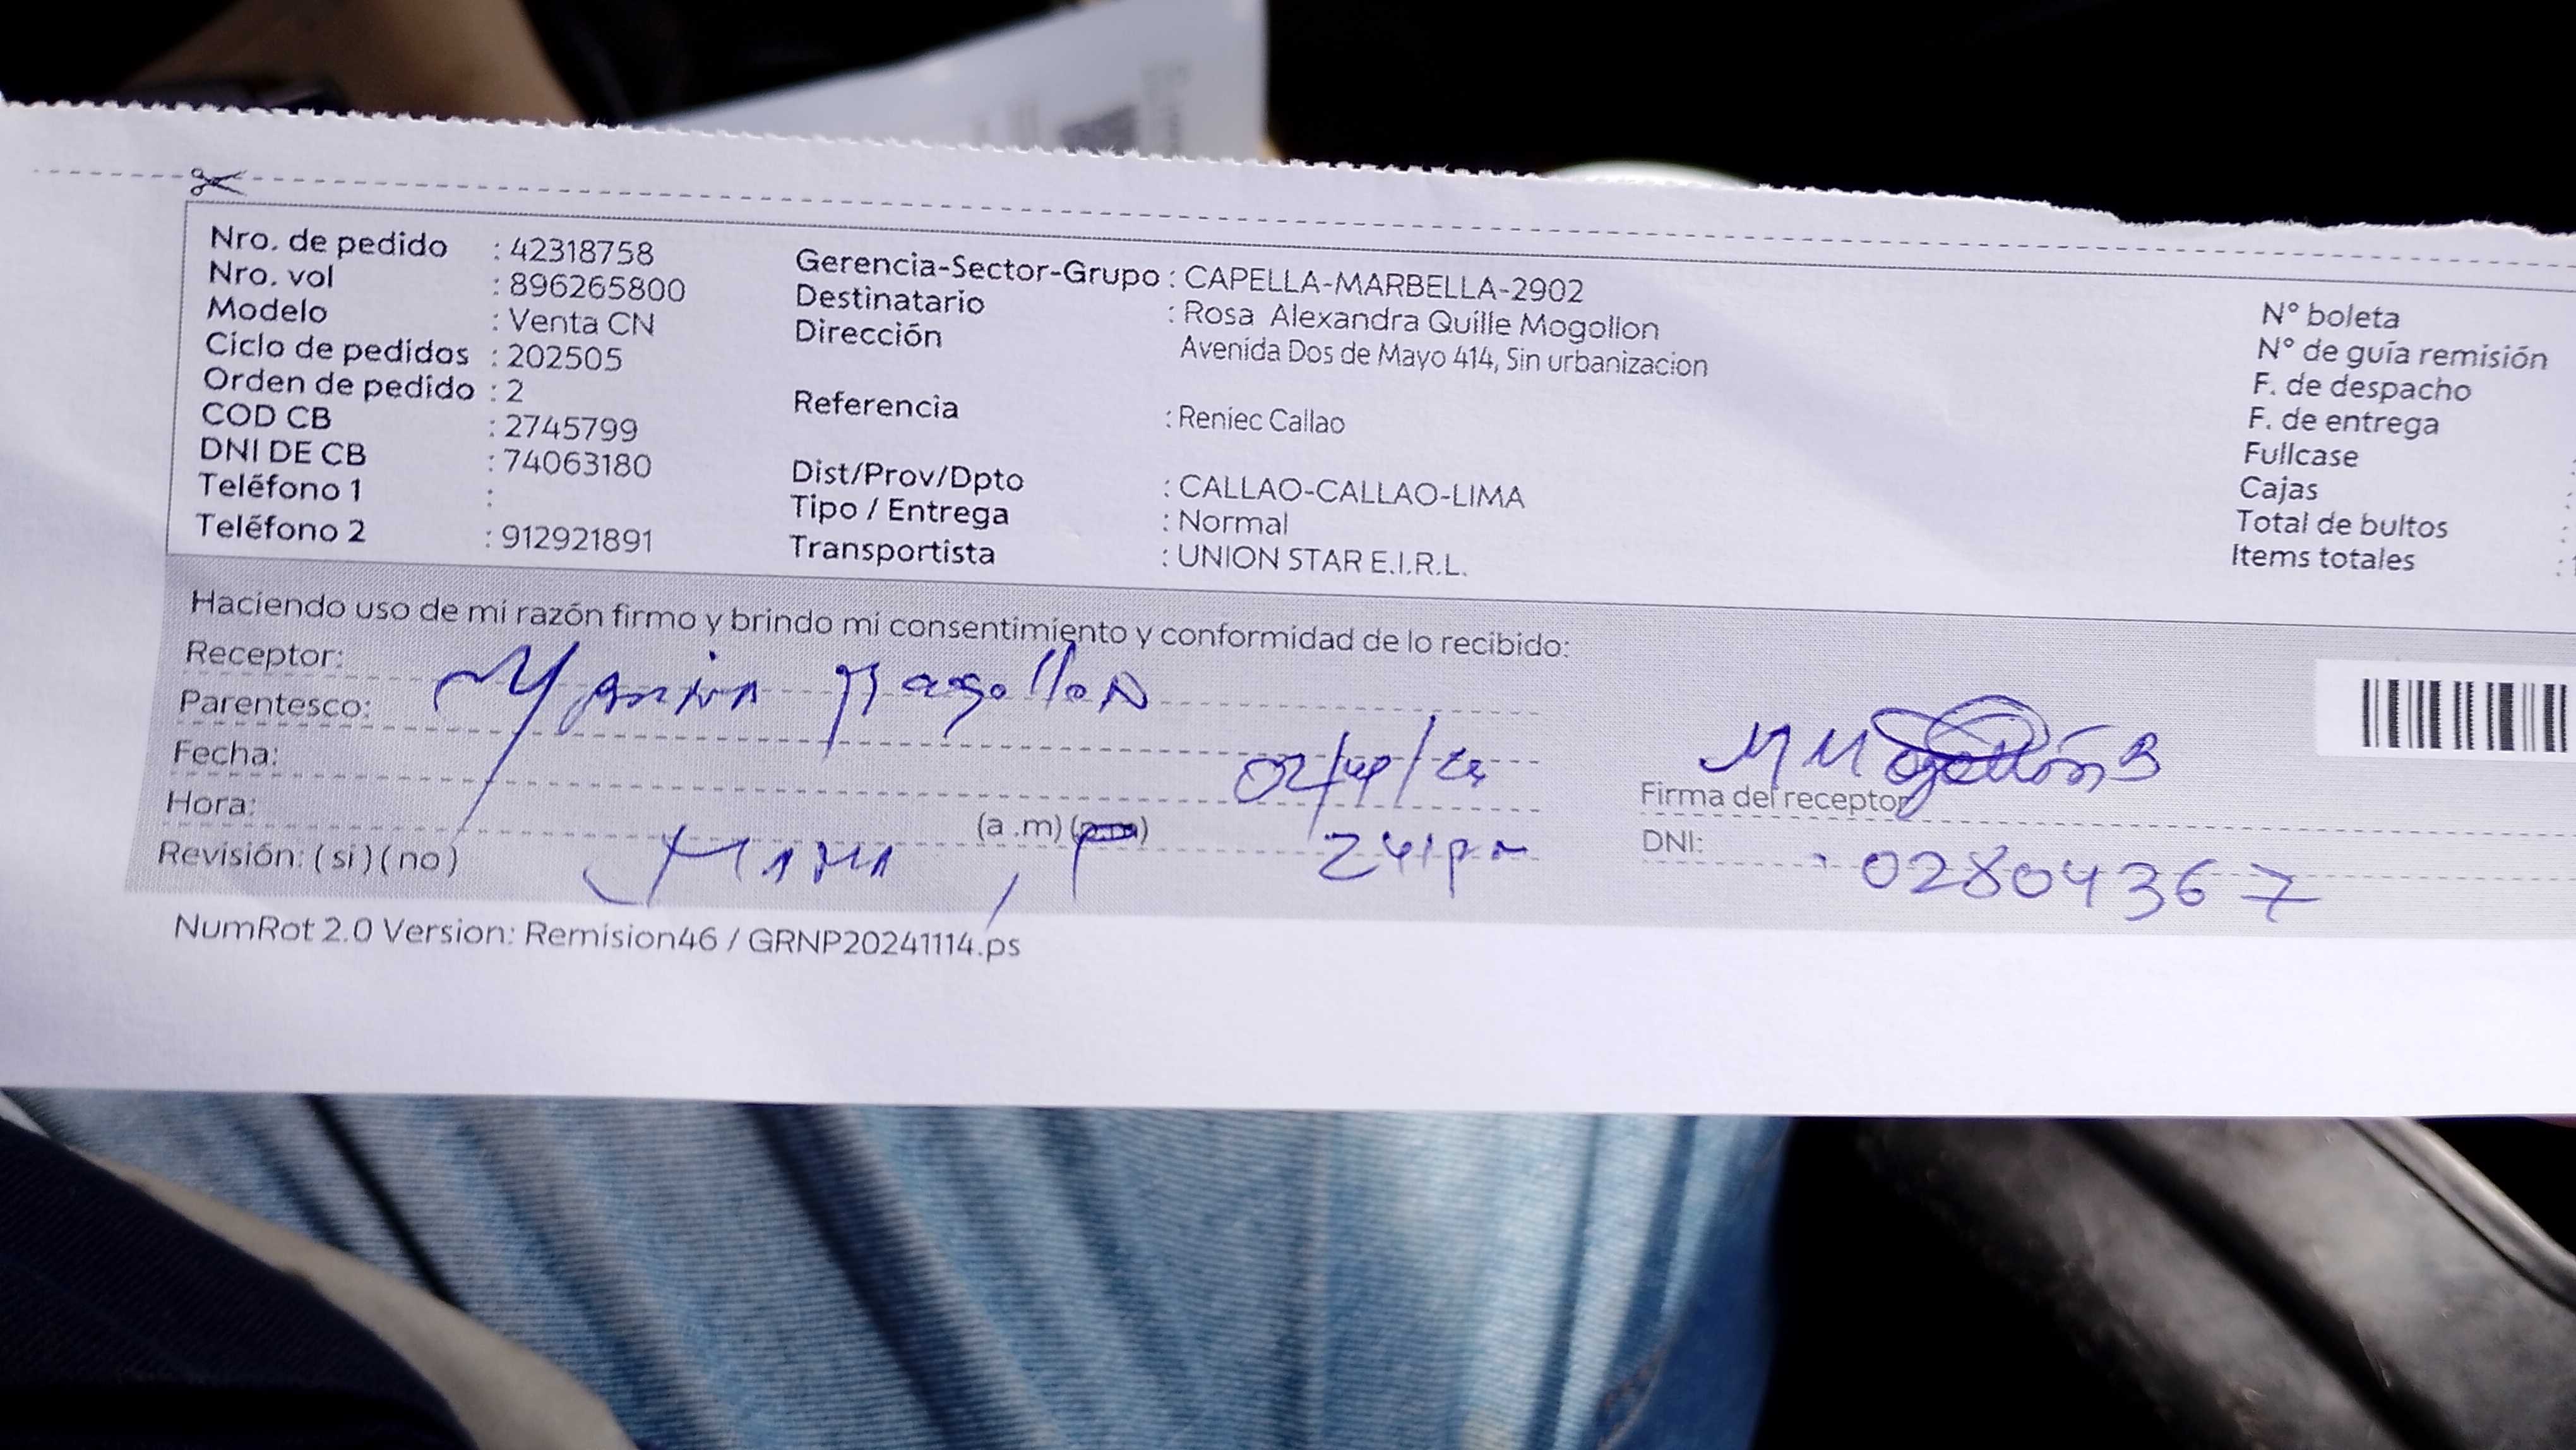 Nro. de pedido : 42318758
Nro. vol : 896265800
Modelo : Venta CN
Ciclo de pedidos : 202505
Orden de pedido : 2
COD CB : 2745799
DNI DE CB : 74063180
Teléfono 1 :
Teléfono 2 : 912921891
Gerencia-Sector-Grupo : CAPELLA-MARBELLA-2902
Destinatario : Rosa Alexandra Quille Mogollon
Dirección Avenida Dos de Mayo 414, Sin urbanizacion
Referencia : Reniec Callao
Dist/Prov/Dpto : CALLAO-CALLAO-LIMA
Tipo / Entrega : Normal
Transportista : UNION STAR E.I.R.L.
N° boleta
N° de guía remisión
F. de despacho
F. de entrega
Fullcase
Cajas
Total de bultos
Items totales
Haciendo uso de mi razón firmo y brindo mi consentimiento y conformidad de lo recibido:
Receptor: Mogollon
Parentesco:
Fecha:
Hora: (a .m) (p.m)
Revisión: ( si ) ( no )
Firma del receptor
DNI: 02804367
NumRot 2.0 Version: Remision46 / GRNP20241114.ps